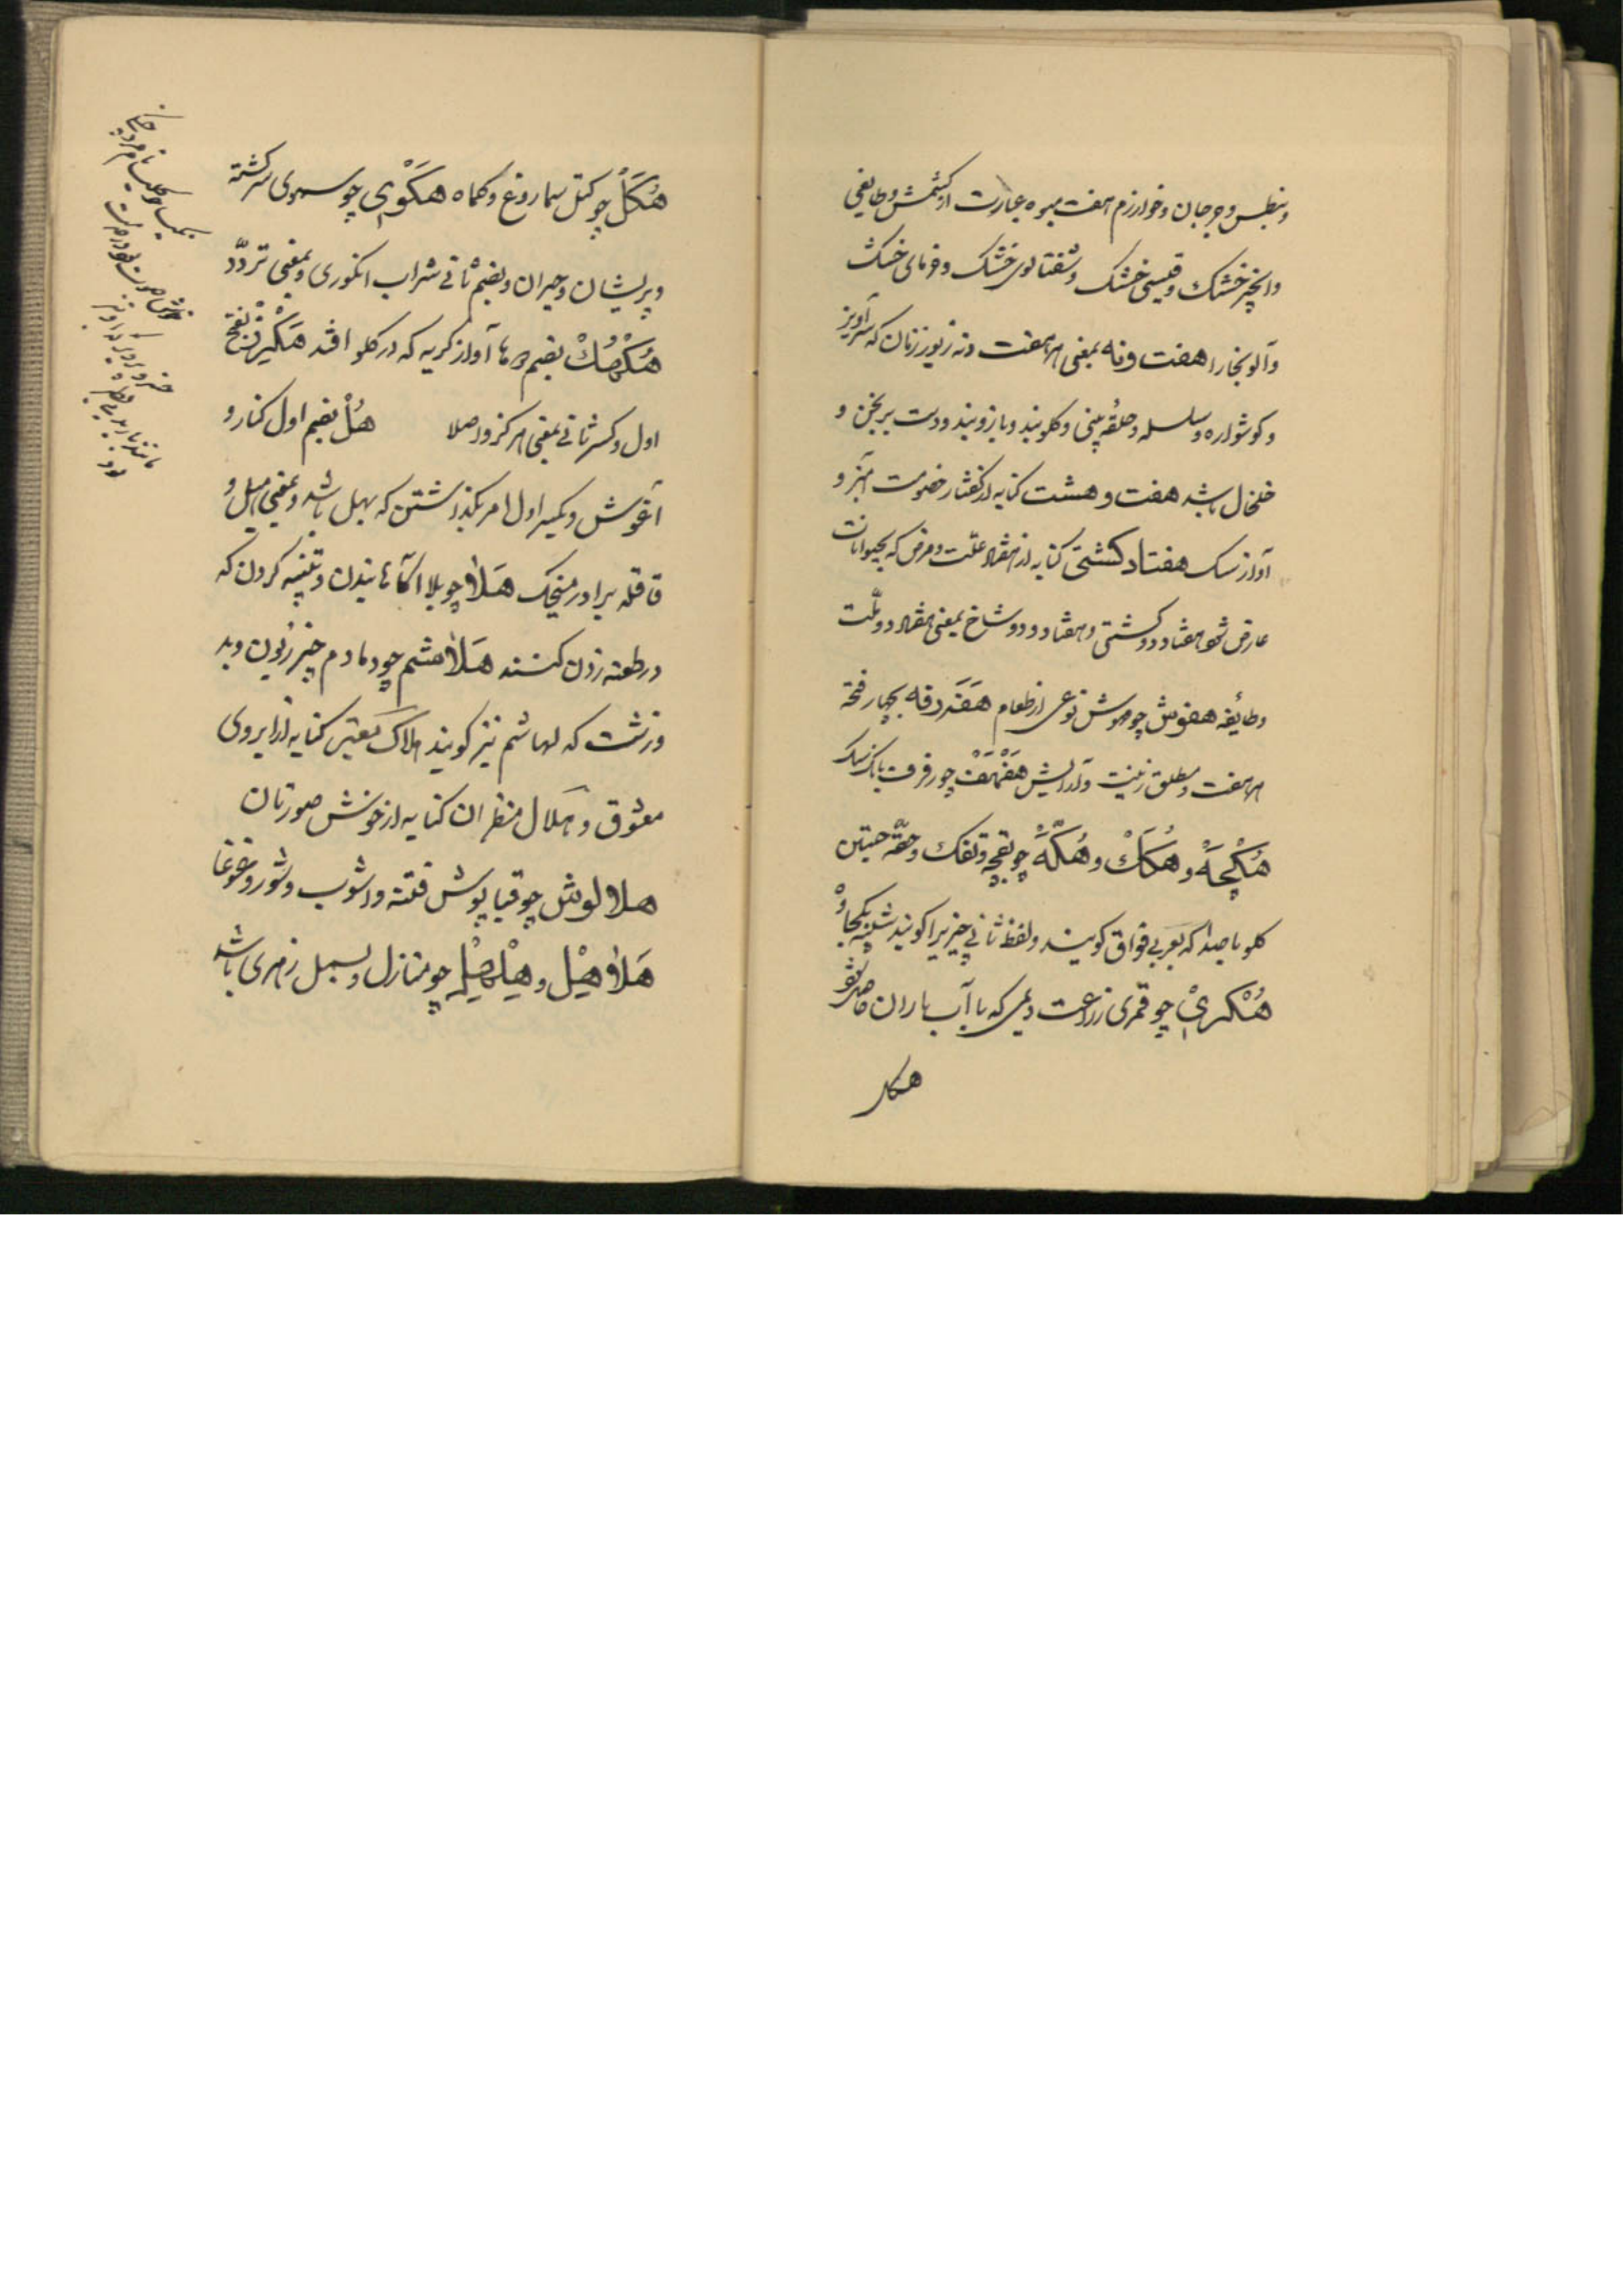 و بنطس و جرجان و خوارزم هفت میوه عبارت از کشمش و طایفی
و انجیر خشک و قیسی خشک و شفتالوی خشک و خرمای خشک
و آلو بخارا هفت و نه بمعنی هر هفت و نه زیور زنان که سرآویز
و کوشواره و سلسله و حلقه بینی و کلوبند و بازوبند و دست برنجن و
خلخال باشد هفت و هشت کنایه از کفتار خصومت آمیز و
آواز سک هفتاد کشتی کنایه از هفتاد علّت و مرض که بحیوانات
عارض شود هفتاد و دو کشتی و هفتاد و دو شاخ بمعنی هفتاد و دو ملّت
و طایفه هفوش چو موش نوعی از طعام هَفَردفه بچهار فتحه
هر هفت و مطلق زینت و آرایش هَفْهَفْ چو رفرف بانک سک
هُکْچَهْ و هُکَکْ و هُکَّهْ چو بقچه و تفک و حقّه جستن
کلو با صدا که بعربی فواق کویند و لفظ ثانی چیزیرا کویند
هُکْریْ چو قمری زراعت دیمی که با آب باران حاصل شود
هکل
هُکَلْ چو کتل سماروغ و کماه هَکَوْی چو سهوی سرکشته
و پریشان و حیران و بضم ثانی شراب انکوری و بمعنی تردّد
هُکْهُکْ بضم هر دو ها آواز کریه که در کلو افتد هَکْیزْ بفتح
اول و کسر ثانی بمعنی هرکز و اصلا هُلْ بضم اول کنار و
آغوش و بکسر اول امر بکذاشتن که بهل باشد و بمعنی هیل و
قاقله برادر میخک هَلا چو بلا آکاهانیدن و تنبیه کردن که
در طعنه زدن کنند هَلاهشم چو دمادم چیز زبون و بد
و زشت که لهاشم نیز کویند هلاک معنبر کنایه از ابروی
معشوق و هلال منظران کنایه از خوش صورتان
هلالوش چو قبا پوش فتنه و آشوب و شور و غوغا
هَلاهیْل و هیْلهیْل چو منازل و سبیل زهری باشد